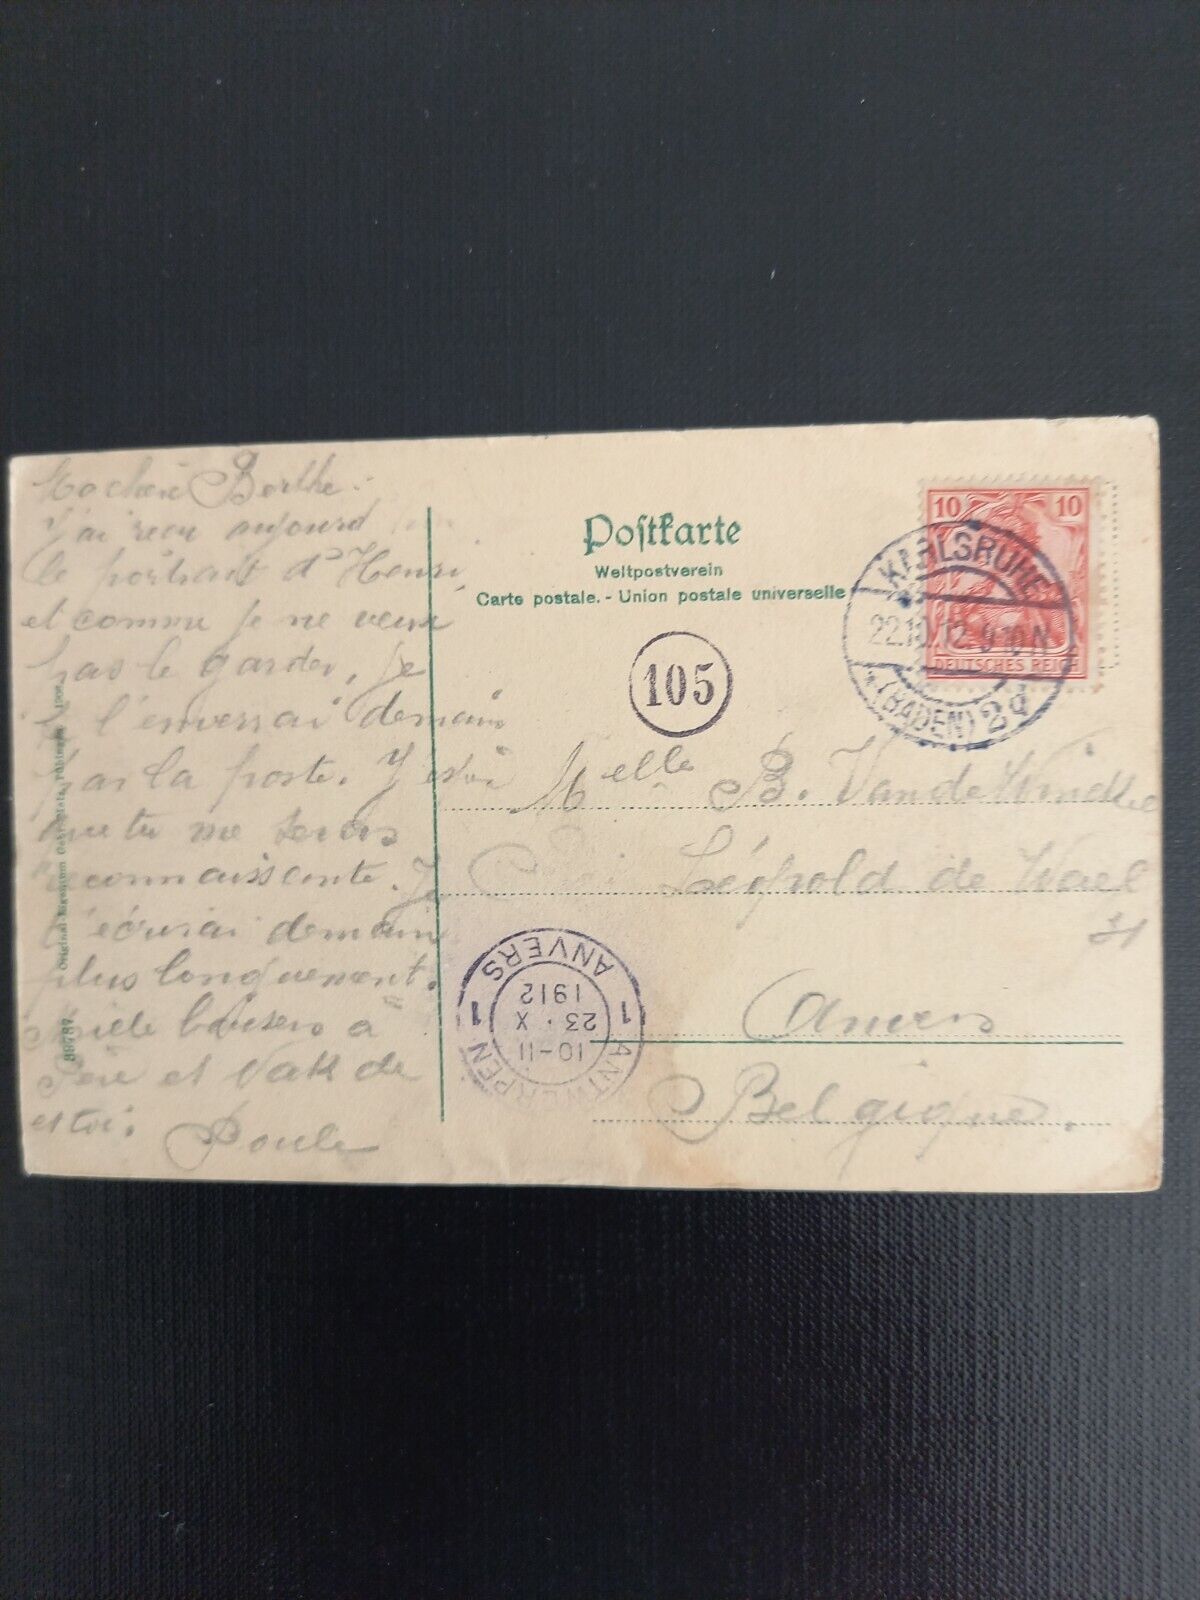 Ma chère Berthe.
J'ai recu aujourd
le portrait d'Henri,
et comme je ne veux
pas le garder, je
l'enverrai demain
par la poste. J'
que tu me seras
reconnaissante. Je
t'écrirai demain
plus longuement.
Mille baisers à
Père et
et toi.
Poule
89787
Postkarte
Weltpostverein
Carte postale. - Union postale universelle
105
10 10
DEUTSCHES REICH
KARLSRUHE
22.10.12. 9-10 N
* (BADEN) 2d
Melle B. VandeWindle
Léopold de Wael
Anvers
Belgique.
1 ANTWERPEN 1
10-11
23. X
1912
ANVERS